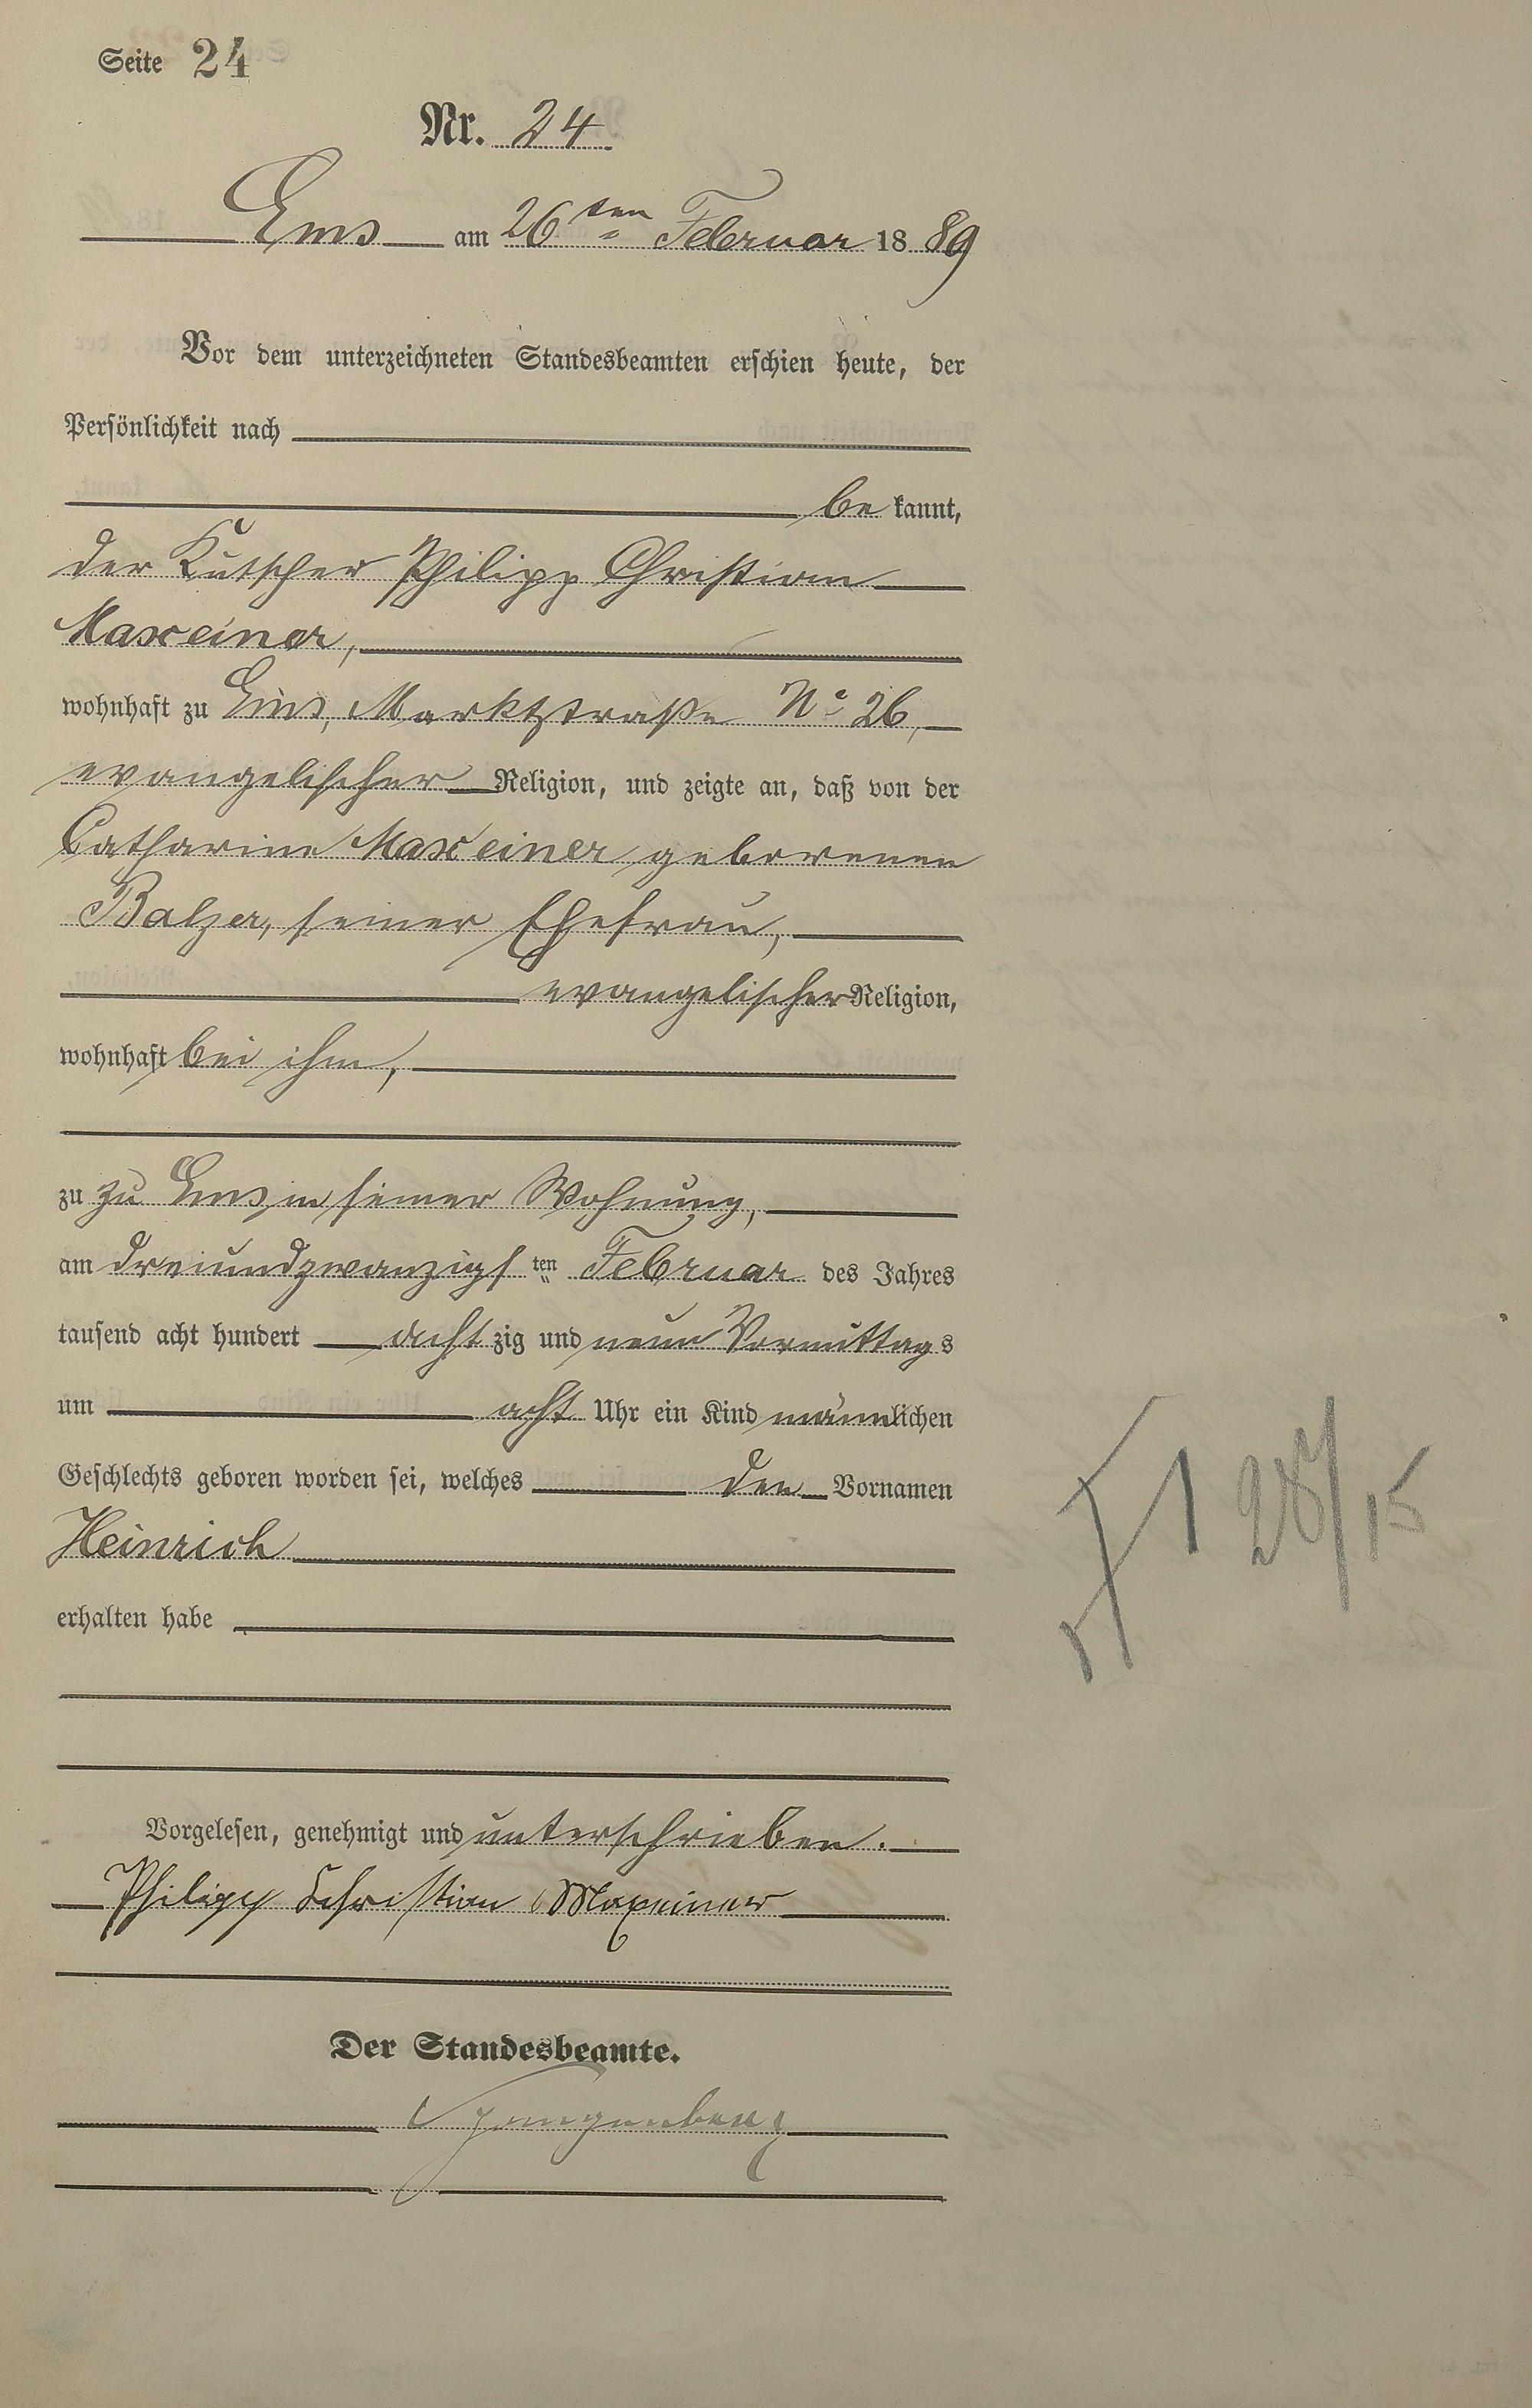 Seite 24
Nr. 24
Ems am 26ten Februar 1889
Vor dem unterzeichneten Standesbeamten erschien heute, der
Persönlichkeit nach
be kannt,
der Kutscher Philipp Christian
Maxeiner,
wohnhaft zu Ems, Marktstraße No 26,
evangelischer Religion, und zeigte an, daß von der
Catharine Maxeiner geborenen
Balzer, seiner Ehefrau,
evangelischer Religion,
wohnhaft bei ihm,
zu zu Ems in seiner Wohnung,
am dreiundzwanzigsten Februar des Jahres
tausend acht hundert achtzig und neun Vormittags
um acht Uhr ein Kind männlichen
Geschlechts geboren worden sei, welches den Vornamen
Heinrich
erhalten habe
Vorgelesen, genehmigt und unterschrieben.
Philipp Christian Maxeiner
Der Standesbeamte.